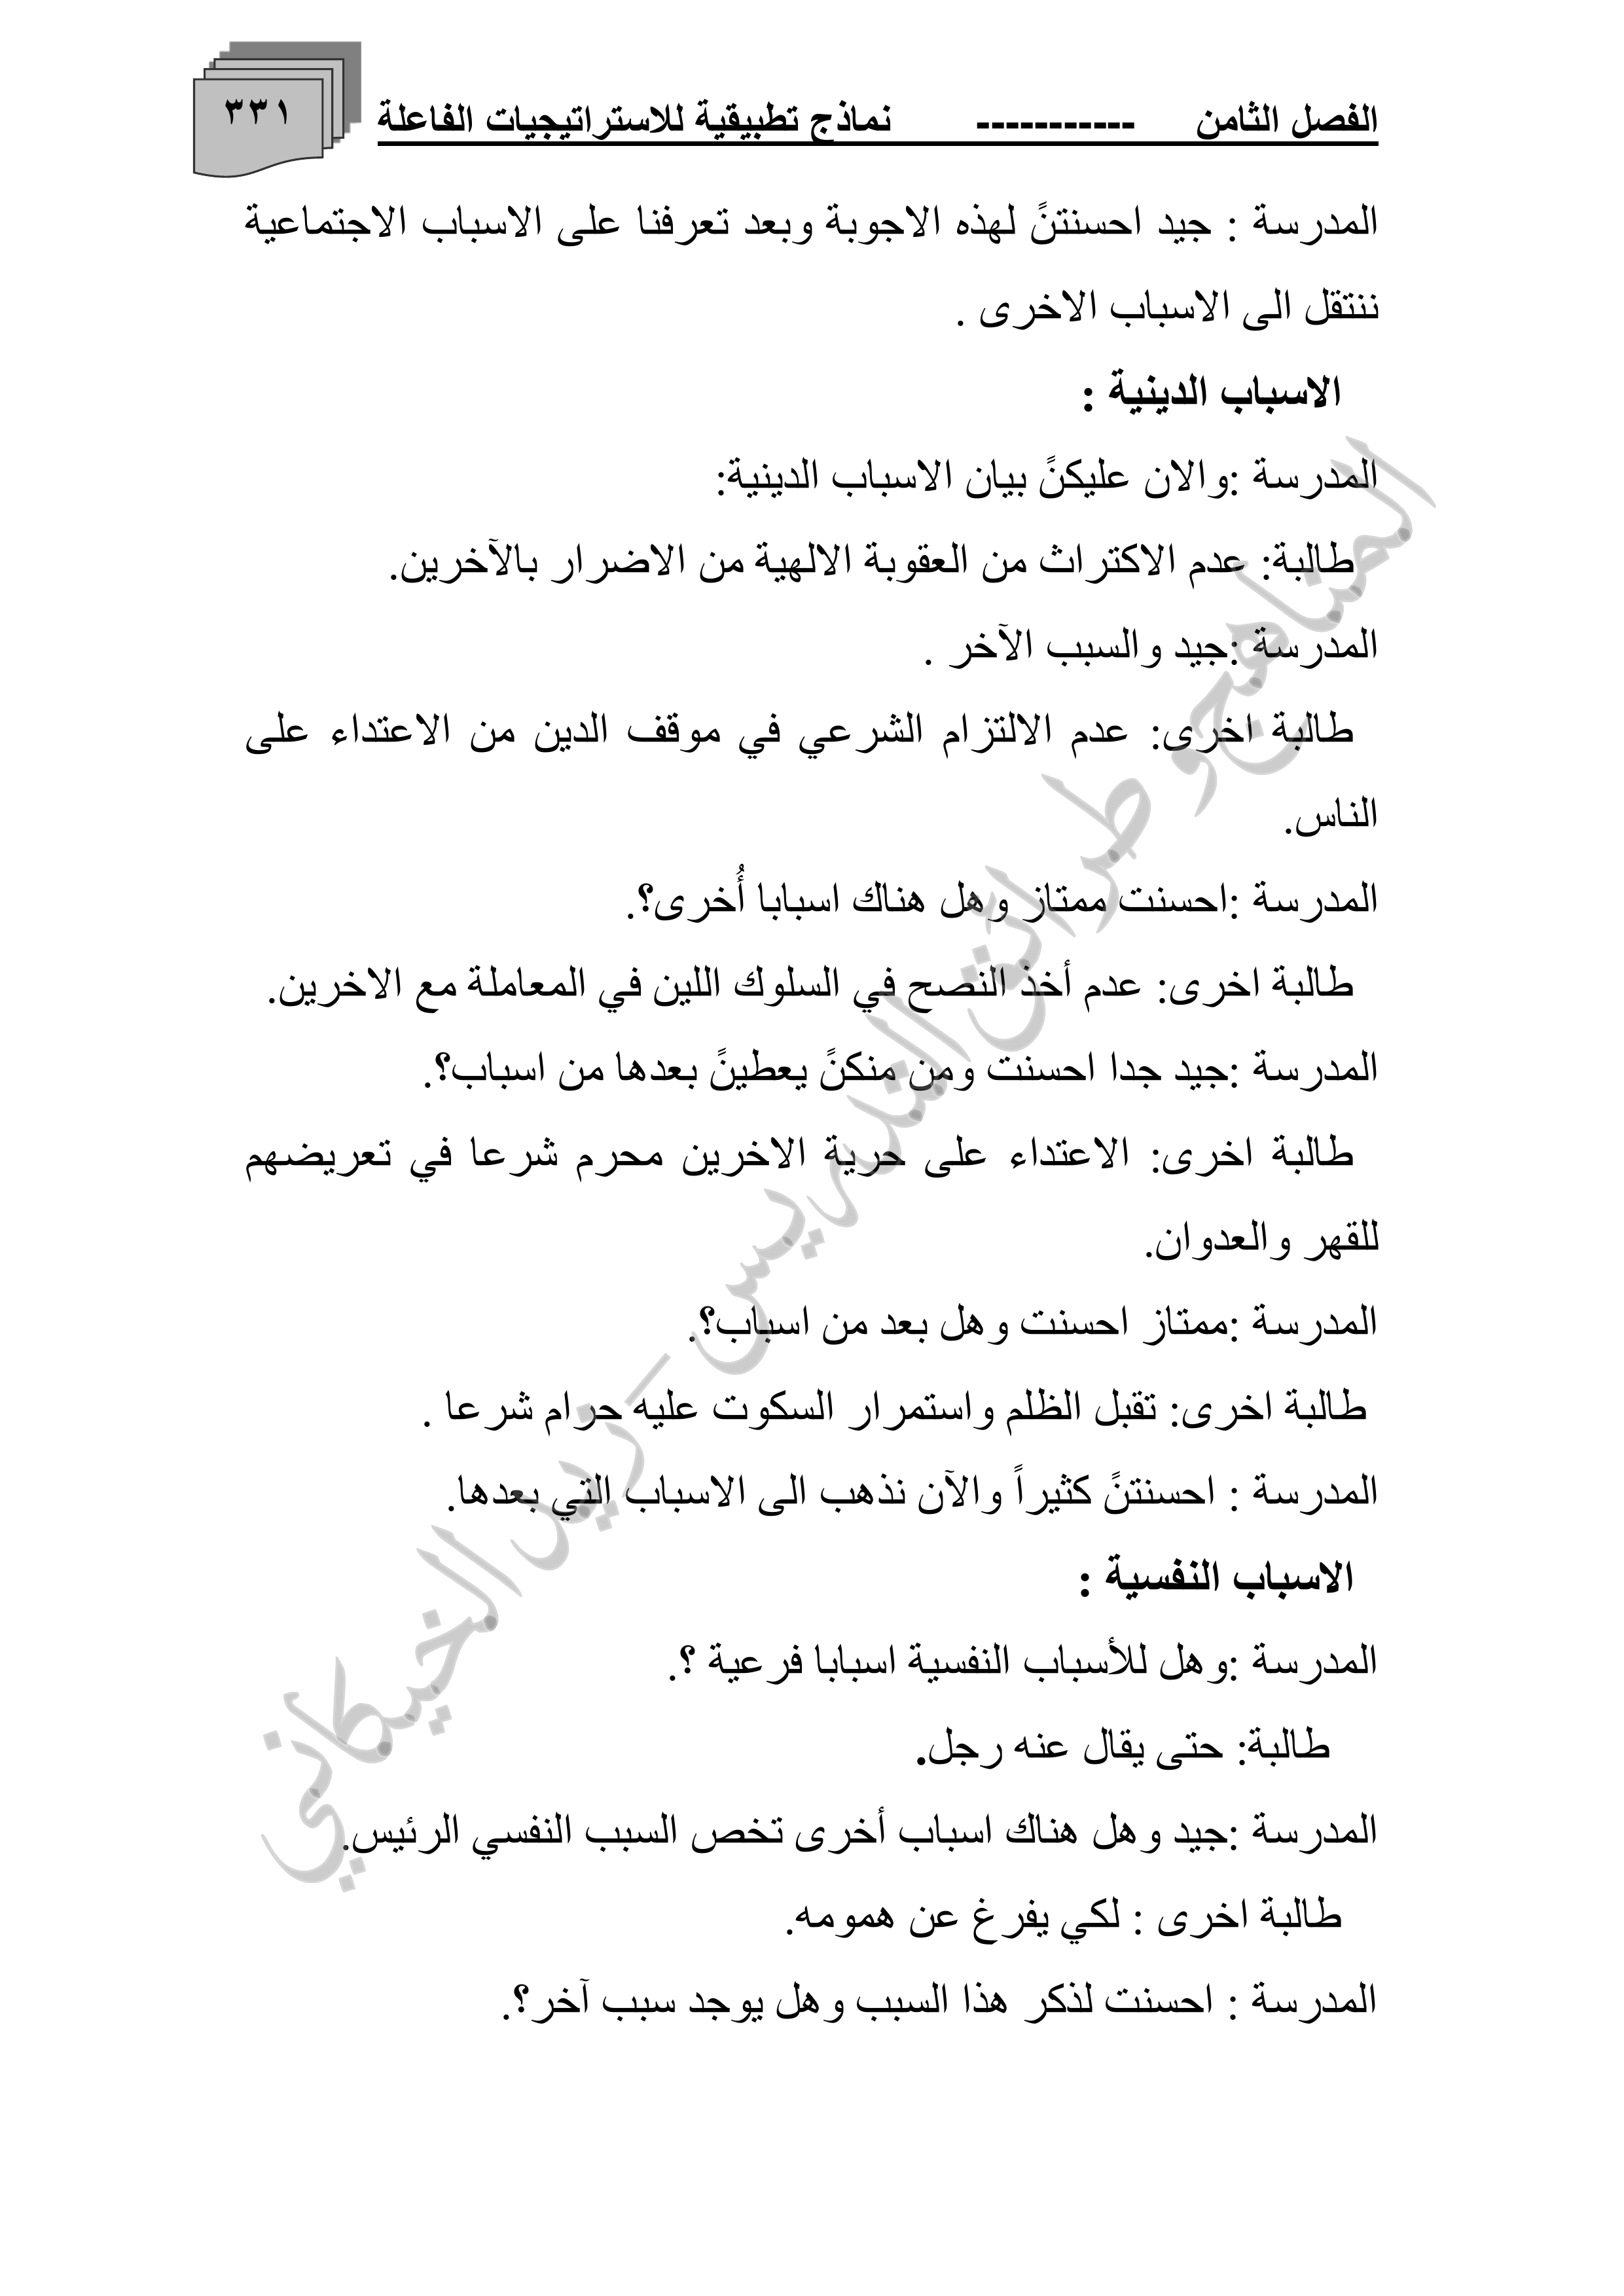 الفصل الثامن ----------- نماذج تطبيقية للاستراتيجيات الفاعلة
٣٣١
المدرسة : جيد احسنتنً لهذه الاجوبة وبعد تعرفنا على الاسباب الاجتماعية
ننتقل الى الاسباب الاخرى .
الاسباب الدينية :
المدرسة :والان عليكنً بيان الاسباب الدينية:
طالبة: عدم الاكتراث من العقوبة الالهية من الاضرار بالآخرين.
المدرسة :جيد والسبب الآخر .
طالبة اخرى: عدم الالتزام الشرعي في موقف الدين من الاعتداء على
الناس.
المدرسة :احسنت ممتاز وهل هناك اسبابا أُخرى؟.
طالبة اخرى: عدم أخذ النصح في السلوك اللين في المعاملة مع الاخرين.
المدرسة :جيد جدا احسنت ومن منكنً يعطينً بعدها من اسباب؟.
طالبة اخرى: الاعتداء على حرية الاخرين محرم شرعا في تعريضهم
للقهر والعدوان.
المدرسة :ممتاز احسنت وهل بعد من اسباب؟.
طالبة اخرى: تقبل الظلم واستمرار السكوت عليه حرام شرعا .
المدرسة : احسنتنً كثيراً والآن نذهب الى الاسباب التي بعدها.
الاسباب النفسية :
المدرسة :وهل للأسباب النفسية اسبابا فرعية ؟.
طالبة: حتى يقال عنه رجل.
المدرسة :جيد وهل هناك اسباب أخرى تخص السبب النفسي الرئيس.
طالبة اخرى : لكي يفرغ عن همومه.
المدرسة : احسنت لذكر هذا السبب وهل يوجد سبب آخر؟.
المناهج وطرائق التدريس - زيد الخيكاني